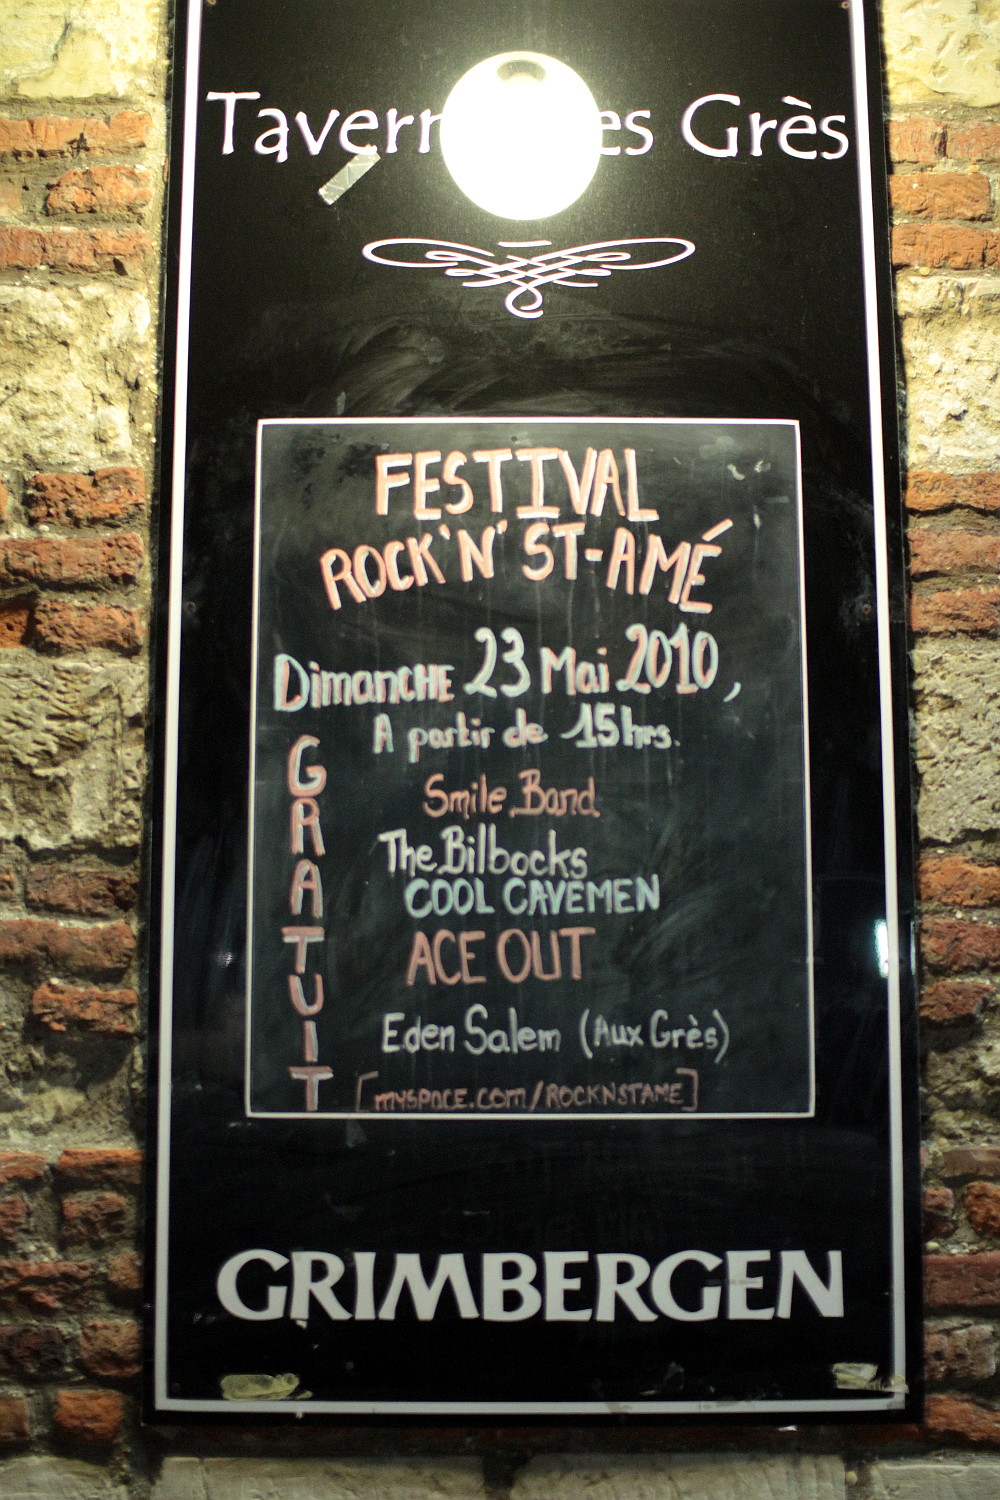 Grès
FESTIVAL
ROCK'N' ST-AMÉ
DimanCHE 23 Mai 2010,
A partir de 15hrs.
GRATUIT
Smile Band
The Bilbocks
COOL CAVEMEN
ACE OUT
Eden Salem (Aux Grès)
[myspace.com/ROCKNSTAME]
GRIMBERGEN